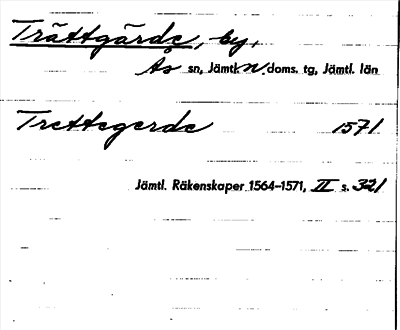 Trättgärde, by,
Ås sn, Jämtl. n. doms. tg, Jämtl. län
Trettegerde 1571
Jämtl. Räkenskaper 1564–1571, II s. 321